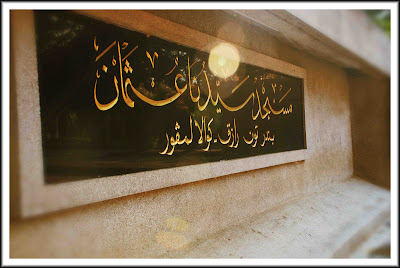 مسجد سيدنا عثمان
بندر تون رازق - كوالا لمڤور